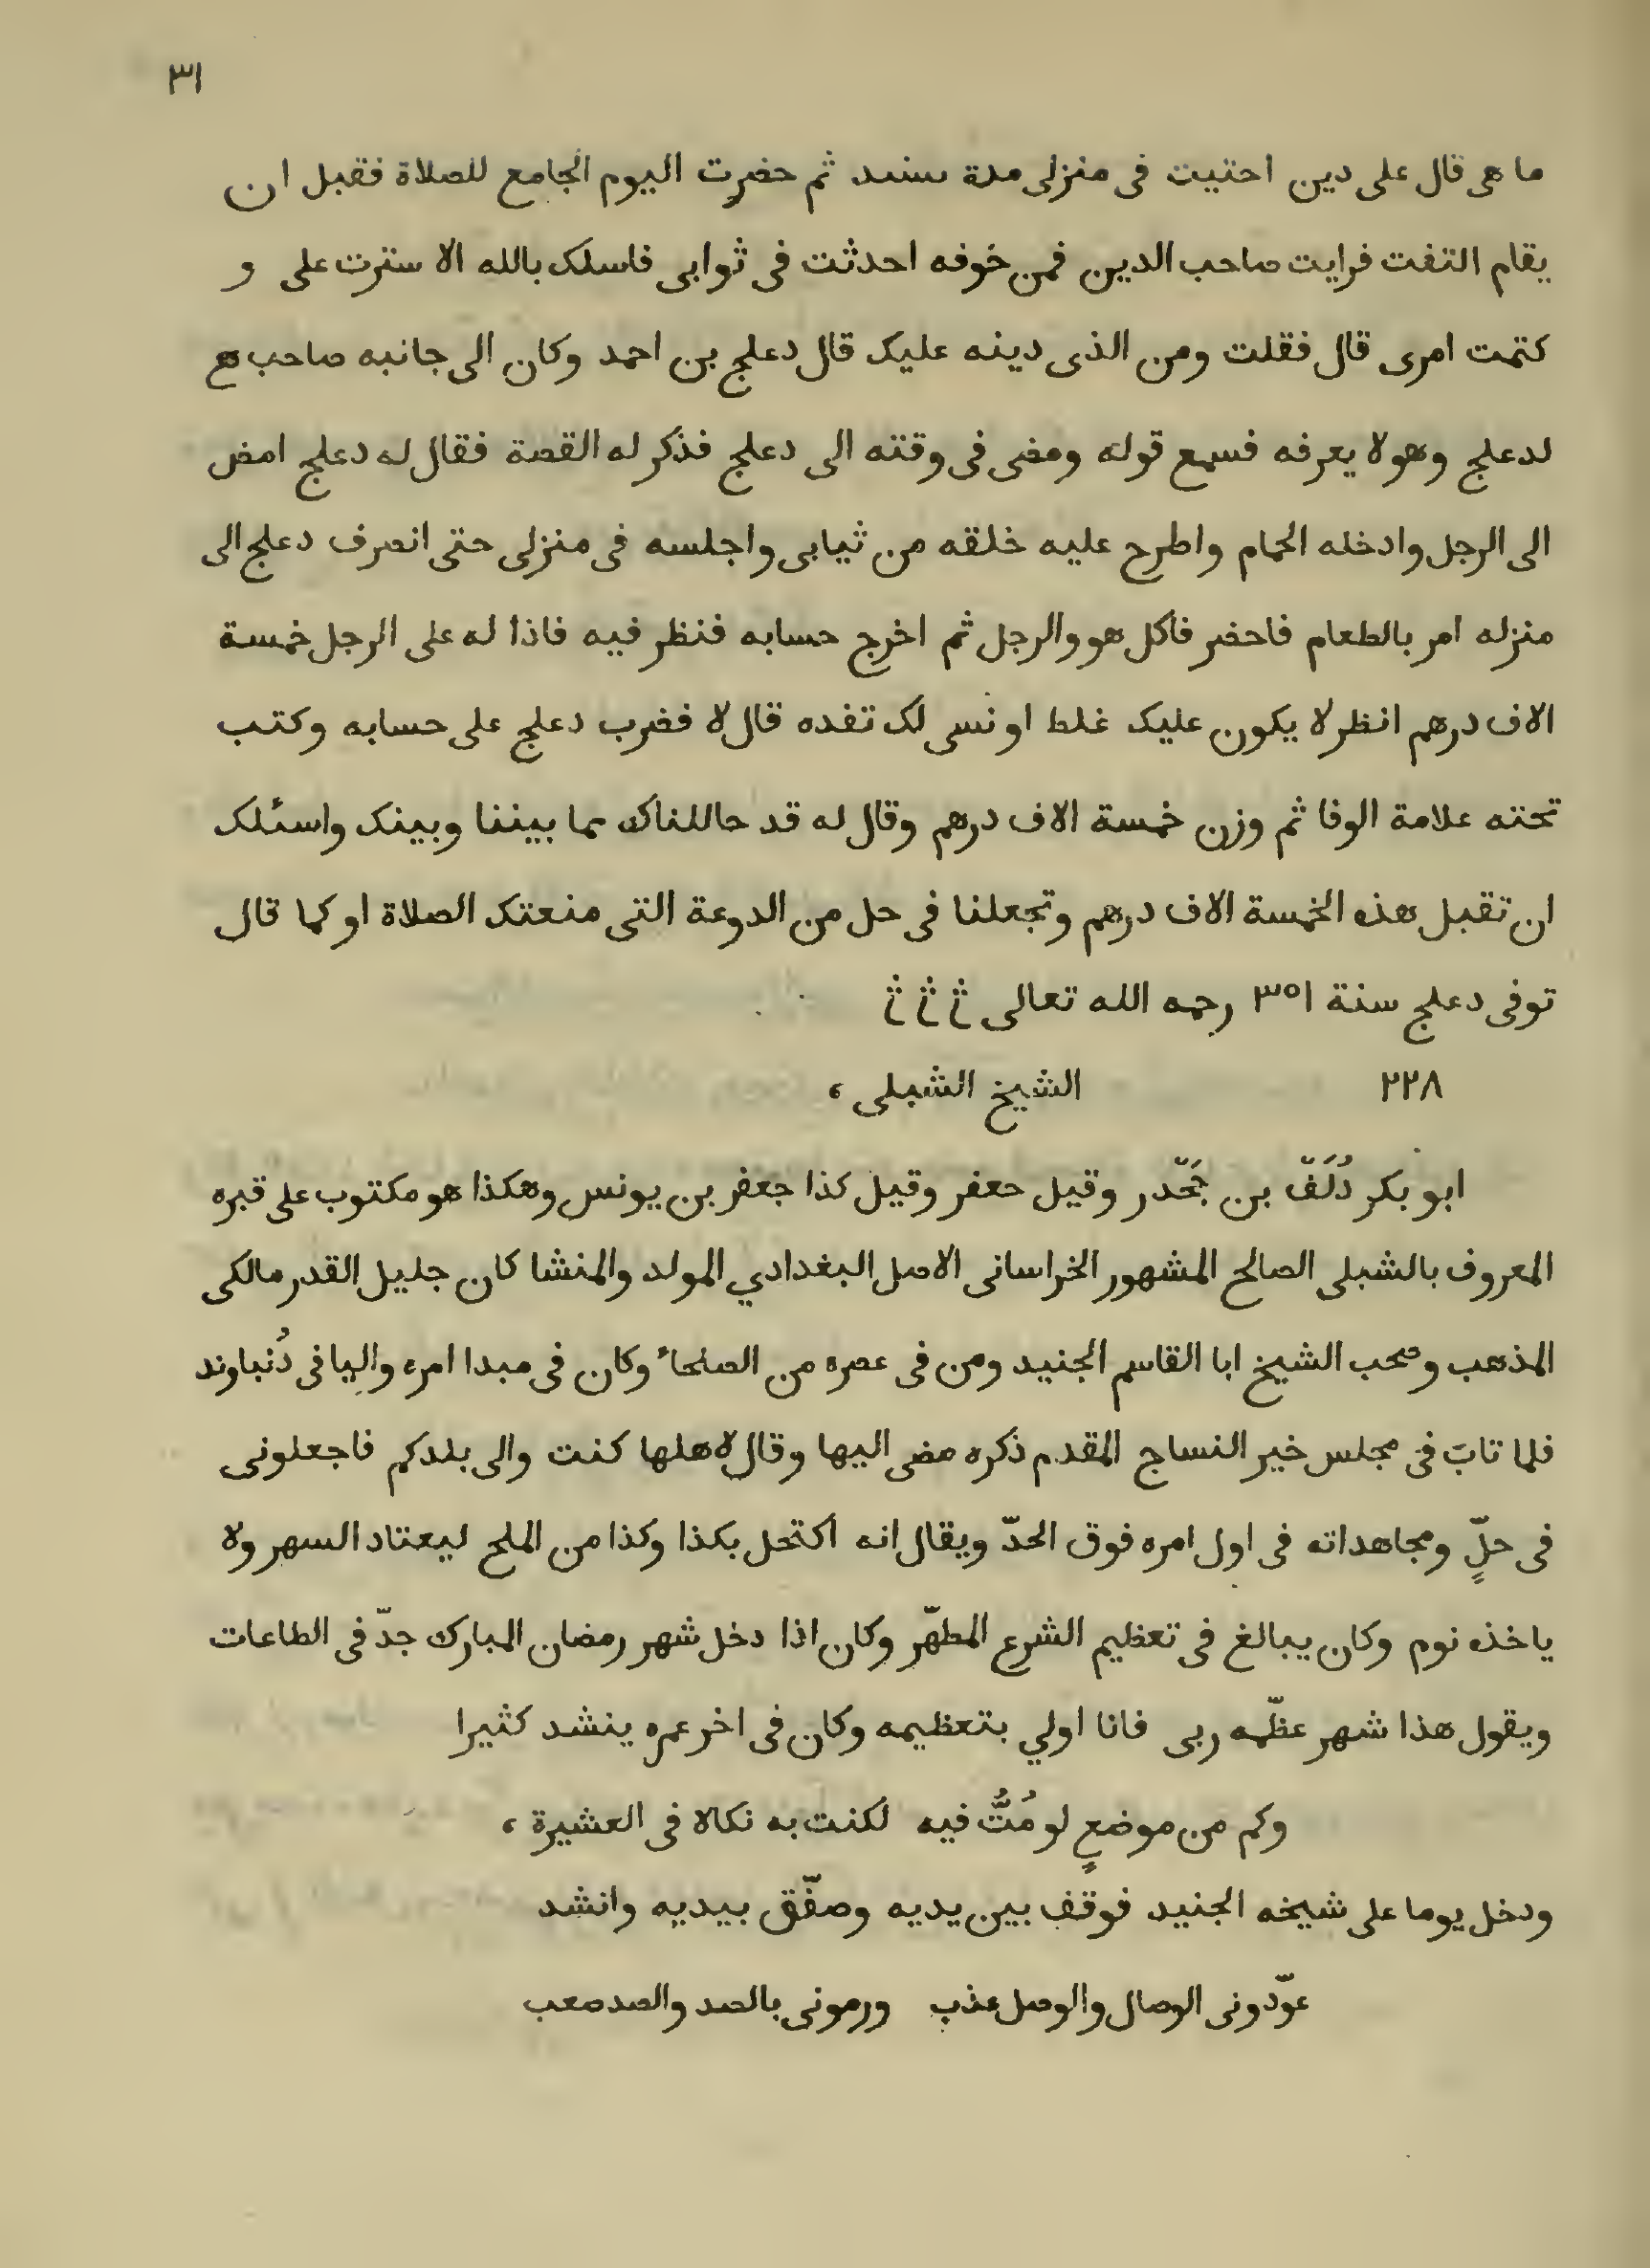 ٣١
ما هى قال على دين احتيت فى منزلى مدة سنىد ثم حضرت اليوم الجامع للصلاة فقبل ان
يقام التفت فرايت صاحب الدين فمن خوفه احدثت فى ثوابى فاسلك بالله الا سترت على و
كتمت امرى قال فقلت ومن الذى دينه عليك قال دعلج بن احمد وكان الى جانبه صاحب
لدعلج وهو لا يعرفه فسمع قوله ومضى فى وقته الى دعلج فذكر له القصة فقال له دعلج امض
الى الرجل وادخله الحمام واطرح عليه خلقه من ثيابى واجلسه فى منزلى حتى انصرف دعلج الى
منزله امر بالطعام فاحضر فاكل هو والرجل ثم اخرج حسابه فنظر فيه فاذا له على الرجل خمسة
الاف درهم انظر لا يكون عليك غلط او نسى لك تفده قال لا فضرب دعلج على حسابه وكتب
تحته علامة الوفا ثم وزن خمسة الاف درهم وقال له قد حاللناك مما بيننا وبينك واسئلك
ان تقبل هذه الخمسة الاف درهم وتجعلنا فى حل من الدوعة التى منعتك الصلاة او كما قال
توفى دعلج سنة ٣٥١ رحمه الله تعالى
٢٢٨ الشيخ الشبلى ،
ابو بكر دُلَفّ بن جَحّدر وقيل حعفر وقيل كذا جعفر بن يونس وهكذا هو مكتوب على قبره
المعروف بالشبلى الصالح المشهور الخراسانى الاصل البغدادي المولد والمنشا كان جليل القدر مالكى
المذهب وصحب الشيخ ابا القاسم الجنيد ومن فى عصره من الصلحاء وكان فى مبدا امره واليا فى دُنباوند
فلما تاب فى مجلس خير النساج المقدم ذكره مضى اليها وقال لاهلها كنت والى بلدكم فاجعلونى
فى حلٍّ ومجاهداته فى اول امره فوق الحدّ ويقال انه اكتحل بكذا وكذا من الملح ليعتاد السهر ولا
ياخذه نوم وكان يبالغ فى تعظيم الشرع المطهّر وكان اذا دخل شهر رمضان المبارك جدّ فى الطاعات
ويقول هذا شهر عظّمه ربى فانا اولي بتعظيمه وكان فى اخر عمره ينشد كثيرا
وكم من موضعٍ لو مُتُّ فيه لكنت به نكالا فى العشيرة ،
ودخل يوما على شيخه الجنيد فوقف بين يديه وصفّق بيديه وانشد
عوّدونى الوصال والوصل عذب ورمونى بالصد والصد صعب